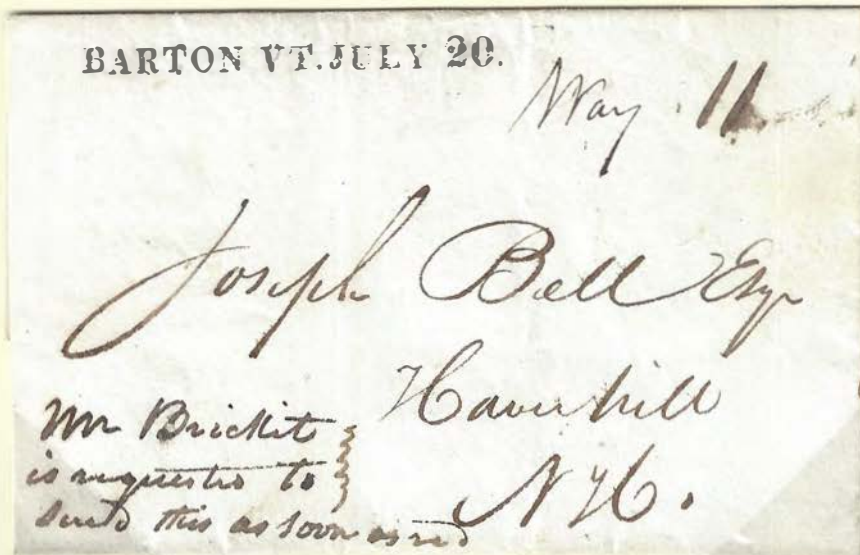 BARTON VT. JULY 20.
Way 11
Joseph Bell Esqr
Haverhill
N H.
Mr Brickit
is requested to
send this as soon as red